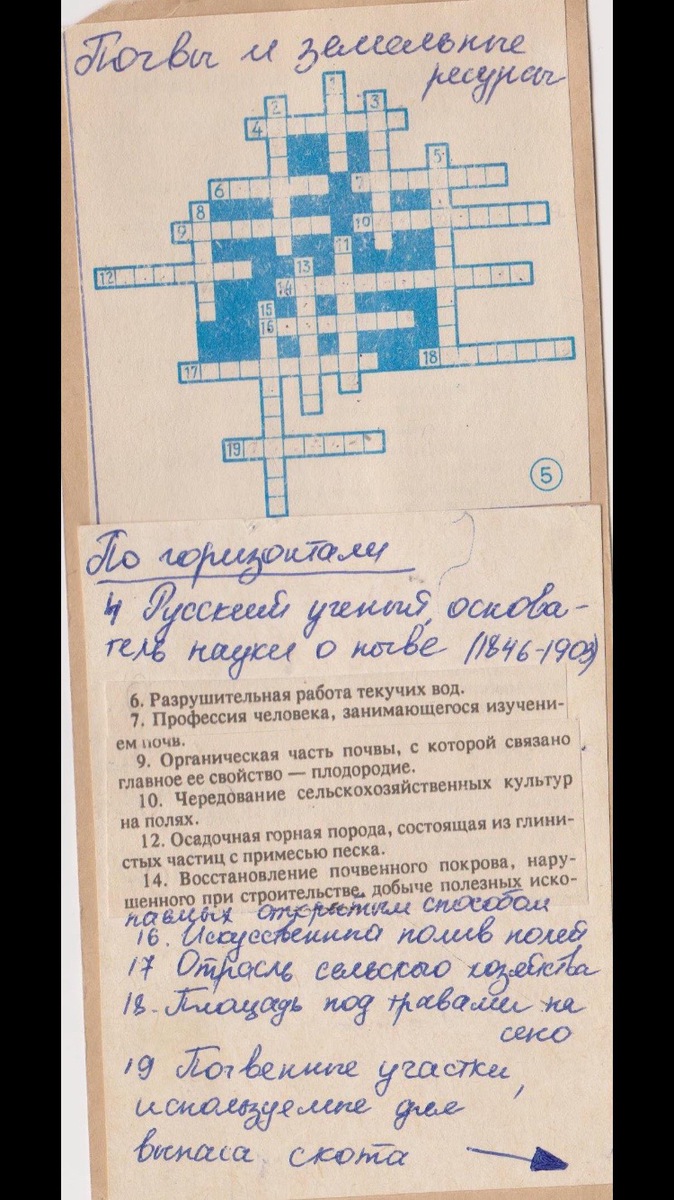 Почвы и земельные
ресурсы
1
2
3
4
5
6
7
8
9
10
11
12
13
14
15
16
17
18
19
5
По горизонтали
4 Русский ученый, основа-
тель науки о почве (1846-1903)
6. Разрушительная работа текучих вод.
7. Профессия человека, занимающегося изучени-
ем почв.
9. Органическая часть почвы, с которой связано
главное ее свойство — плодородие.
10. Чередование сельскохозяйственных культур
на полях.
12. Осадочная горная порода, состоящая из глини-
стых частиц с примесью песка.
14. Восстановление почвенного покрова, нару-
шенного при строительстве, добыче полезных иско-
паемых открытым способом
16. Искусственный полив полей
17 Отрасль сельского хозяйства
18. Площадь под травами на
сено
19 Почвенные участки,
используемые для
выпаса скота